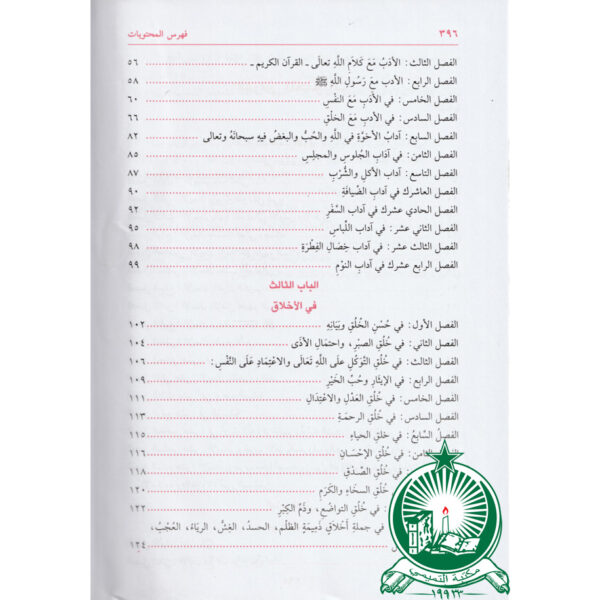 ٣٩٦ فهرس المحتويات
الفصل الثالث: الأدَبُ مَعَ كَلَامِ اللَّهِ تعالَى ـ القرآن الكريم ـ ٥٦
الفصل الرابع: الأدب معَ رَسُولِ اللَّهِ ﷺ ٥٨
الفصل الخامس: في الأَدَبِ مَعَ النَّفْسِ ٦٠
الفصل السادس: في الأدبِ مَعَ الخَلْقِ ٦٦
الفصل السابع: آدابُ الأخوَّةِ في اللَّهِ والحُبِّ والبغضُ فيهِ سبحانَهُ وتعالى ٨٢
الفصل الثامن: في آدَابِ الجُلوسِ والمجلِسِ ٨٥
الفصل التاسع: آداب الأكلِ والشُّرْبِ ٨٧
الفصل العاشرك في آدابِ الضِّيافَةِ ٩٠
الفصل الحادي عشرك في آداب السَّفَرِ ٩٢
الفصل الثاني عشر: في آدابِ اللِّباسِ ٩٥
الفصل الثالث عشر: في آداب خِصَالِ الفِطْرَةِ ٩٨
الفصل الرابع عشرك في آدابِ النوْمِ ٩٩
الباب الثالث
في الأخلاق
الفصل الأول: في حُسْنِ الخُلُقِ وبَيَانِهِ ١٠٢
الفصل الثاني: في خُلُقِ الصبْرِ، واحتمالِ الأذَى ١٠٤
الفصل الثالث: في خُلُقِ التَّوَكُّلِ علَى اللَّهِ تَعَالَى والاعْتِمَادِ عَلَى النَّفْسِ: ١٠٦
الفصل الرابع: في الإيثارِ وحُبِّ الخَيْرِ ١٠٩
الفصل الخامس: في خُلُقِ العَدْلِ والاعْتِدَالِ ١١١
الفصل السادس: في خُلُقِ الرحمةِ ١١٣
الفصلُ السَّابعُ: في خلقِ الحياءِ ١١٥
الثامن: في خُلُقِ الإحْسَانِ ١١٦
خُلُقِ الصِّدْقِ ١١٨
خُلُقِ السخَاءِ والكَرَمِ ١٢٠
: في خُلُقِ التواضُعِ، وذَمِّ الكِبْرِ ١٢٢
في جملةِ أَخْلَاقٍ ذَمِيمَةٍ الظلْم، الحسدُ، الغِشُّ، الريَاءُ، العُجْبُ،
١٢٤
مكتبة القديمي
١٩٩٢٣